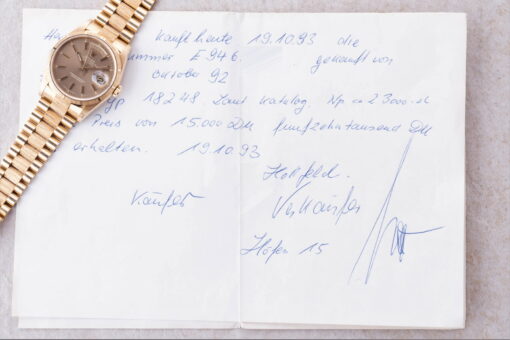 kauft heute 19.10.93 die
ummer E 946. gekauft von
Oktober 92
yp 18248. Laut Katalog. Np ca 2300
Preis von 15.000 DM fünfzehntausend DM
erhalten. 19.10.93
Käufer
Verkäufer
Höfen 15